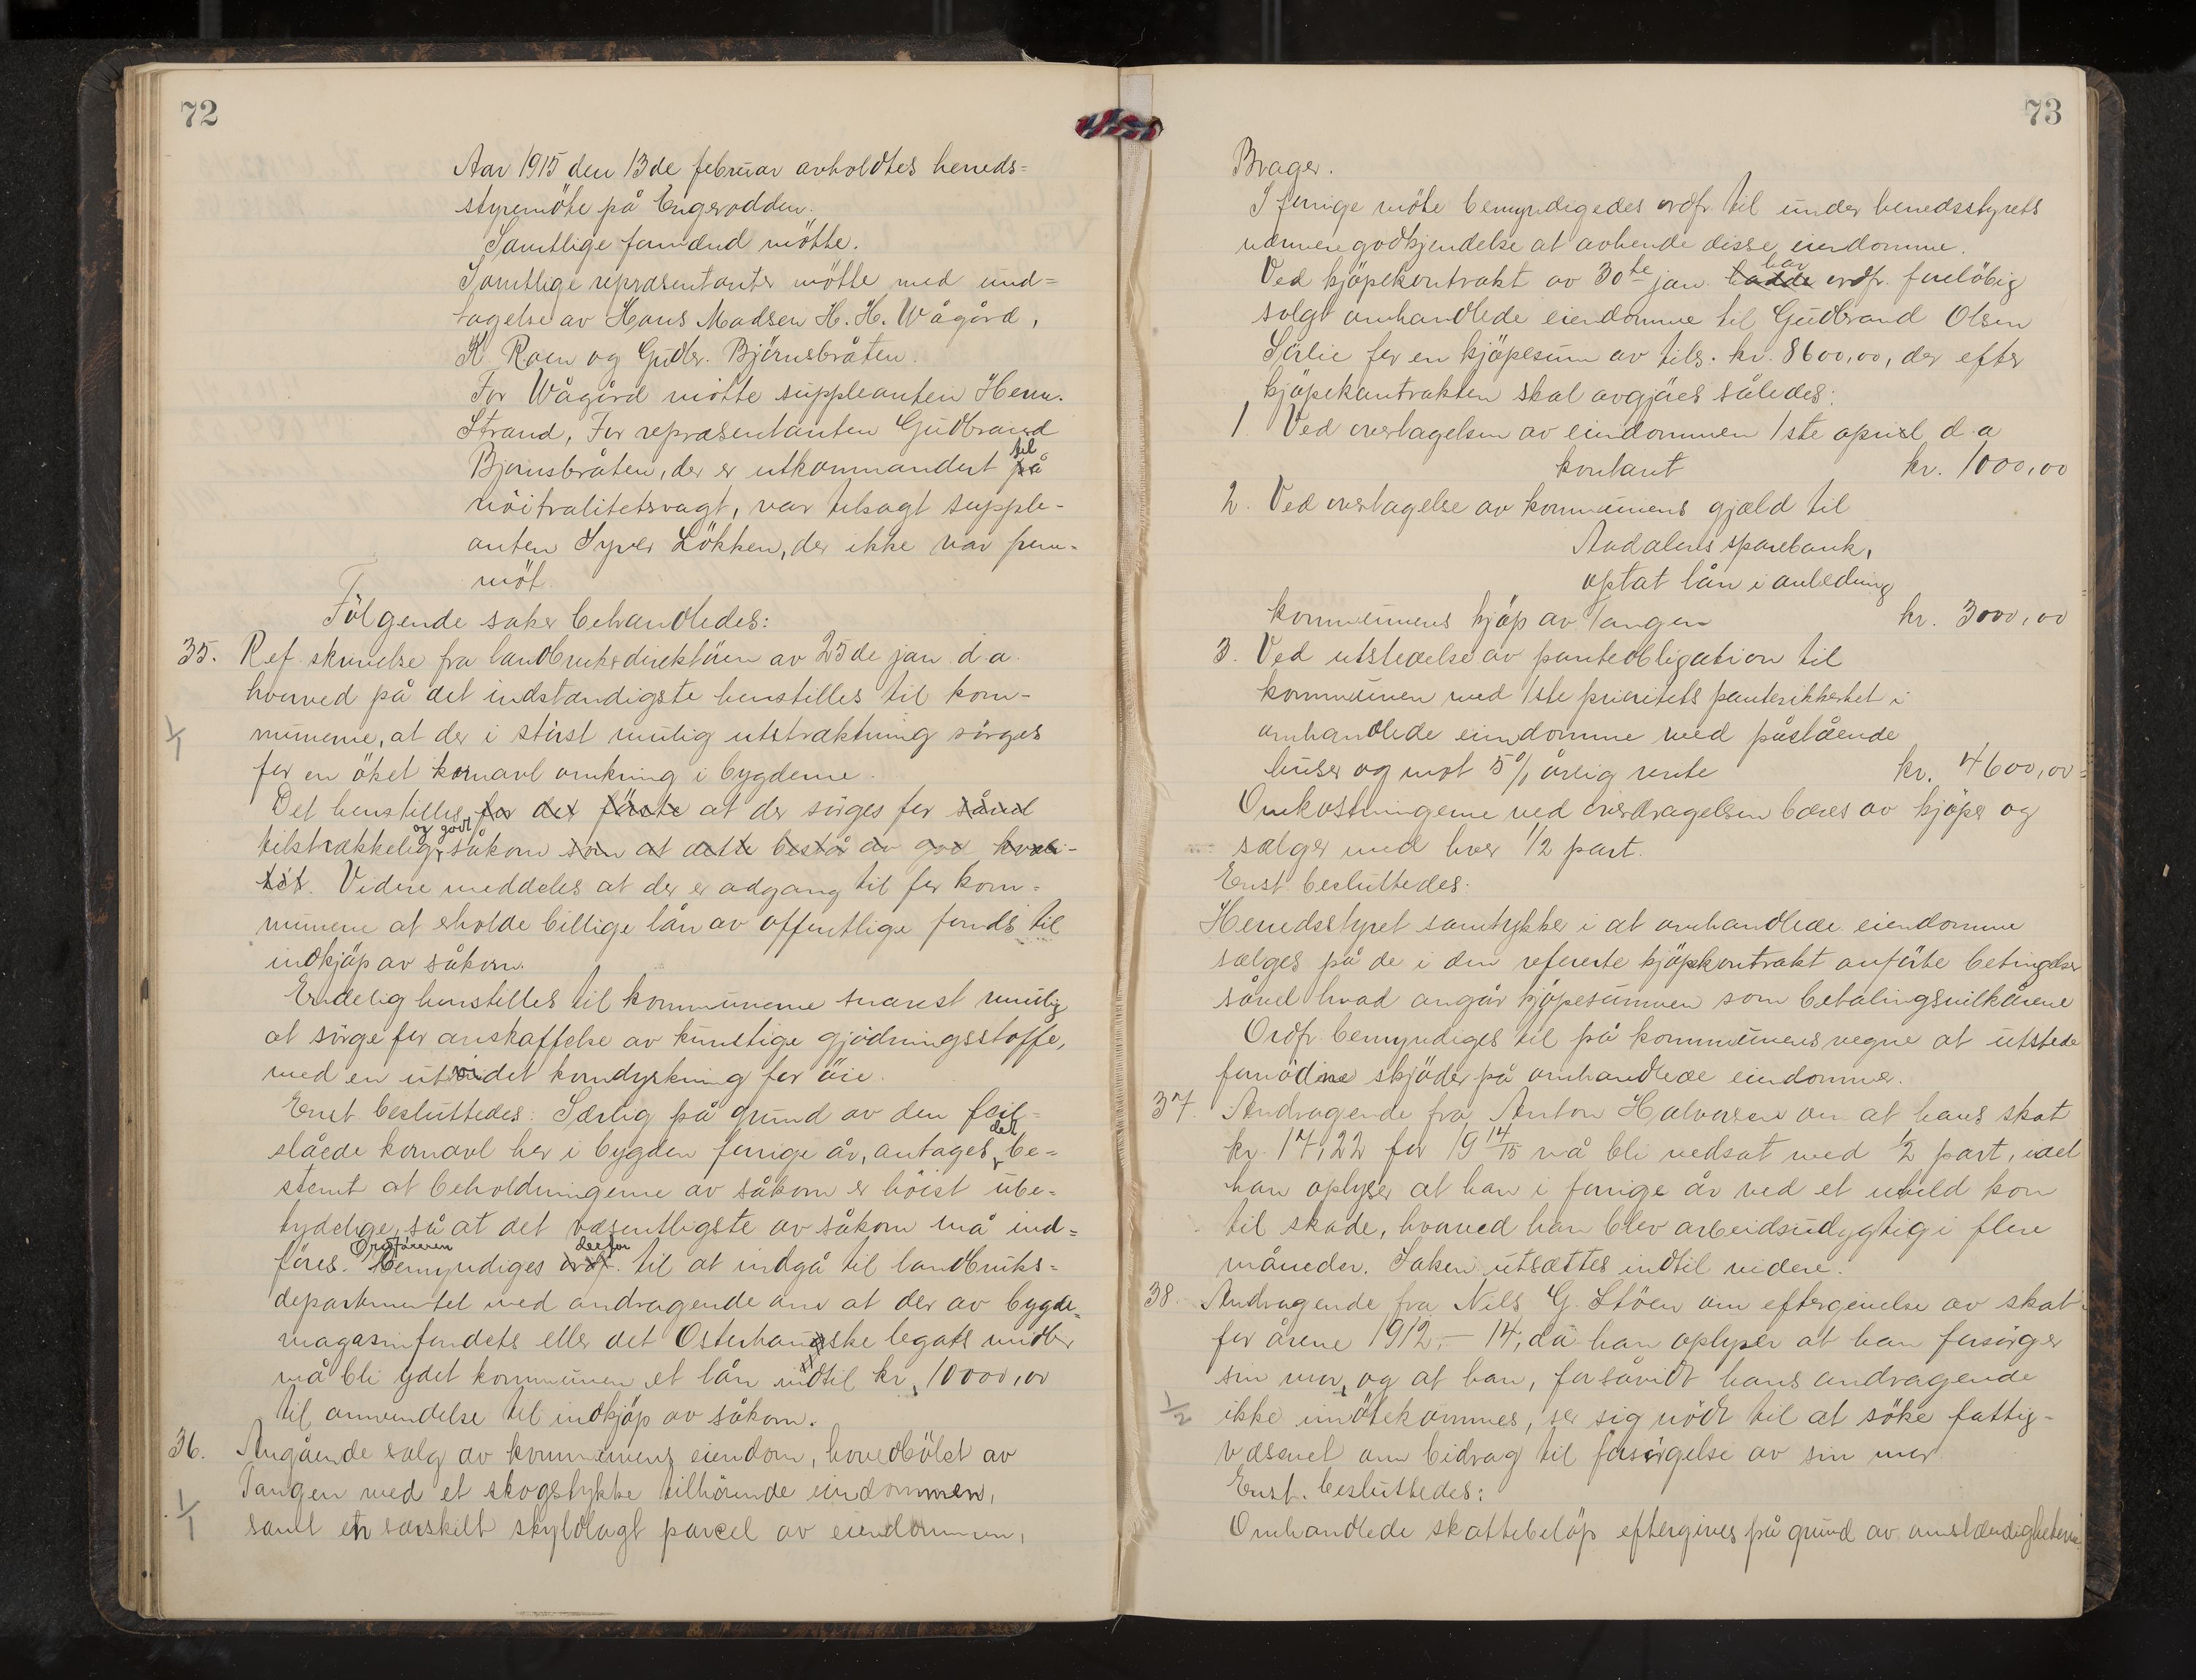 72
Aar 1915 den 13de februar avholdtes herreds=
styremöte på Engerodden.
Samtlige formænd mötte.
Samtlige repræsentanter mötte med und=
tagelse av Hans Madsen H. H. Wågård,
K. Roen og Gudbr. Björnsbråten.
For Wågård mötte suppleanten Herm.
Strand, For repræsentanten Gudbrand
Bjornsbråten, der er utkommandert på til
nöitralitetsvagt, var tilsagt supple-
anten Syver Lökken, der ikke var frem-
möt.
Fölgende saker behandledes:
35. Ref. skrivelse fra landbruksdirektören av 25de jan. d.a.
hvorved på det indstændigste henstilles til kom-
1/1
munerne, at der i störst mulig utstrækning sörges
for en öket kornavl omkring i bygderne.
Det henstilles for det förste at der sörges for såvel
tilstrækkelig og godt såkorn som at dette bestå av god kvali-
tet. Videre meddeles at der er adgang til for kom-
munene at erholde billige lån av offentlige fonds til
indkjöp av såkorn.
Endelig henstilles til kommunerne snarest mulig
at sörge for anskaffelse av kunstige gjödningsstoffe,
med en utvidet korndyrkning for öie.
Enst. besluttedes: Særlig på grund av den feil=
slåede kornavl her i bygden forrige år, antages det be=
stemt at beholdningerne av såkorn er höist ube=
tydelige, så at det væsentligste av såkorn må ind=
föres. Ordföreren bemyndiges ordf. derfor til at indgå til landbruks=
departementet med andragende om at der av bygde=
magasinfondets eller det Osterhaugske legats midler
må bli ydet kommunen et lån indtil kr. 10000,00
til anvendelse til indkjöp av såkorn.
36. Angående salg av kommunens eiendom, hovedbölet av
Tangen med et skogstykke tilhörende eiendommen,
1/1
samt en særskilt skyldlagt parcel av eiendommen,
73
Brager.
I forrige möte bemyndigedes ordf. til under herredsstyrets
nærmere godkjendelse at avhende disse eiendomme.
Ved kjöpekontrakt av 30te jan. hadde har ordf. forelöbig
solgt omhandlede eiendomme til Gudbrand Olsen
Sörlie for en kjöpesum av tils. kr. 8600,00, der efter
kjöpekontrakten skal avgjöres således:
1. Ved overtagelsen av eiendommen 1ste april d.a
kontant kr. 1000,00
2. Ved overtagelse av kommunens gjæld til
Aadalens sparebank,
optat lån i anledning
kommunens kjöp av Tangen kr. 3000,00
3. Ved utstedelse av panteobligation til
kommunen med 1ste prioritets pantesikkerhet i
omhandlede eiendomme med påstående
huser og mot 5% årlig rente kr. 4600,00=
Omkostningerne ved overdragelsen bæres av kjöper og
sælger med hver 1/2 part.
Enst. besluttedes:
Herredsstyret samtykker i at omhandlede eiendomme
sælges på de i den refererte kjöpekontrakt anförte betingelser
såvel hvad angår kjöpesummen som betalingsvilkårene
Ordf. bemyndiges til på kommunens vegne at utstede
fornödne skjöder på omhandlede eiendommer.
37. Andragende fra Anton Halvorsen om at hans skat
kr. 17,22 for 19 14/15 må bli nedsat med 1/2 part, idet
han oplyser at han i forrige år ved et uheld kom
til skade, hvorved han blev arbeidsudygtig i flere
måneder. Saken utsættes indtil videre.
38. Andragende fra Nils G. Stöen om eftergivelse av skat
for årene 1912,- 14, da han oplyser at han forsörger
sin mor, og at han, forsåvidt hans andragende
1/2
ikke imötekommes, ser sig nödt til at söke fattig-
væsenet om bidrag til forsörgelse av sin mor.
Enst. besluttedes:
Omhandlede skattebelöp eftergives på grund av omstændigheterne.